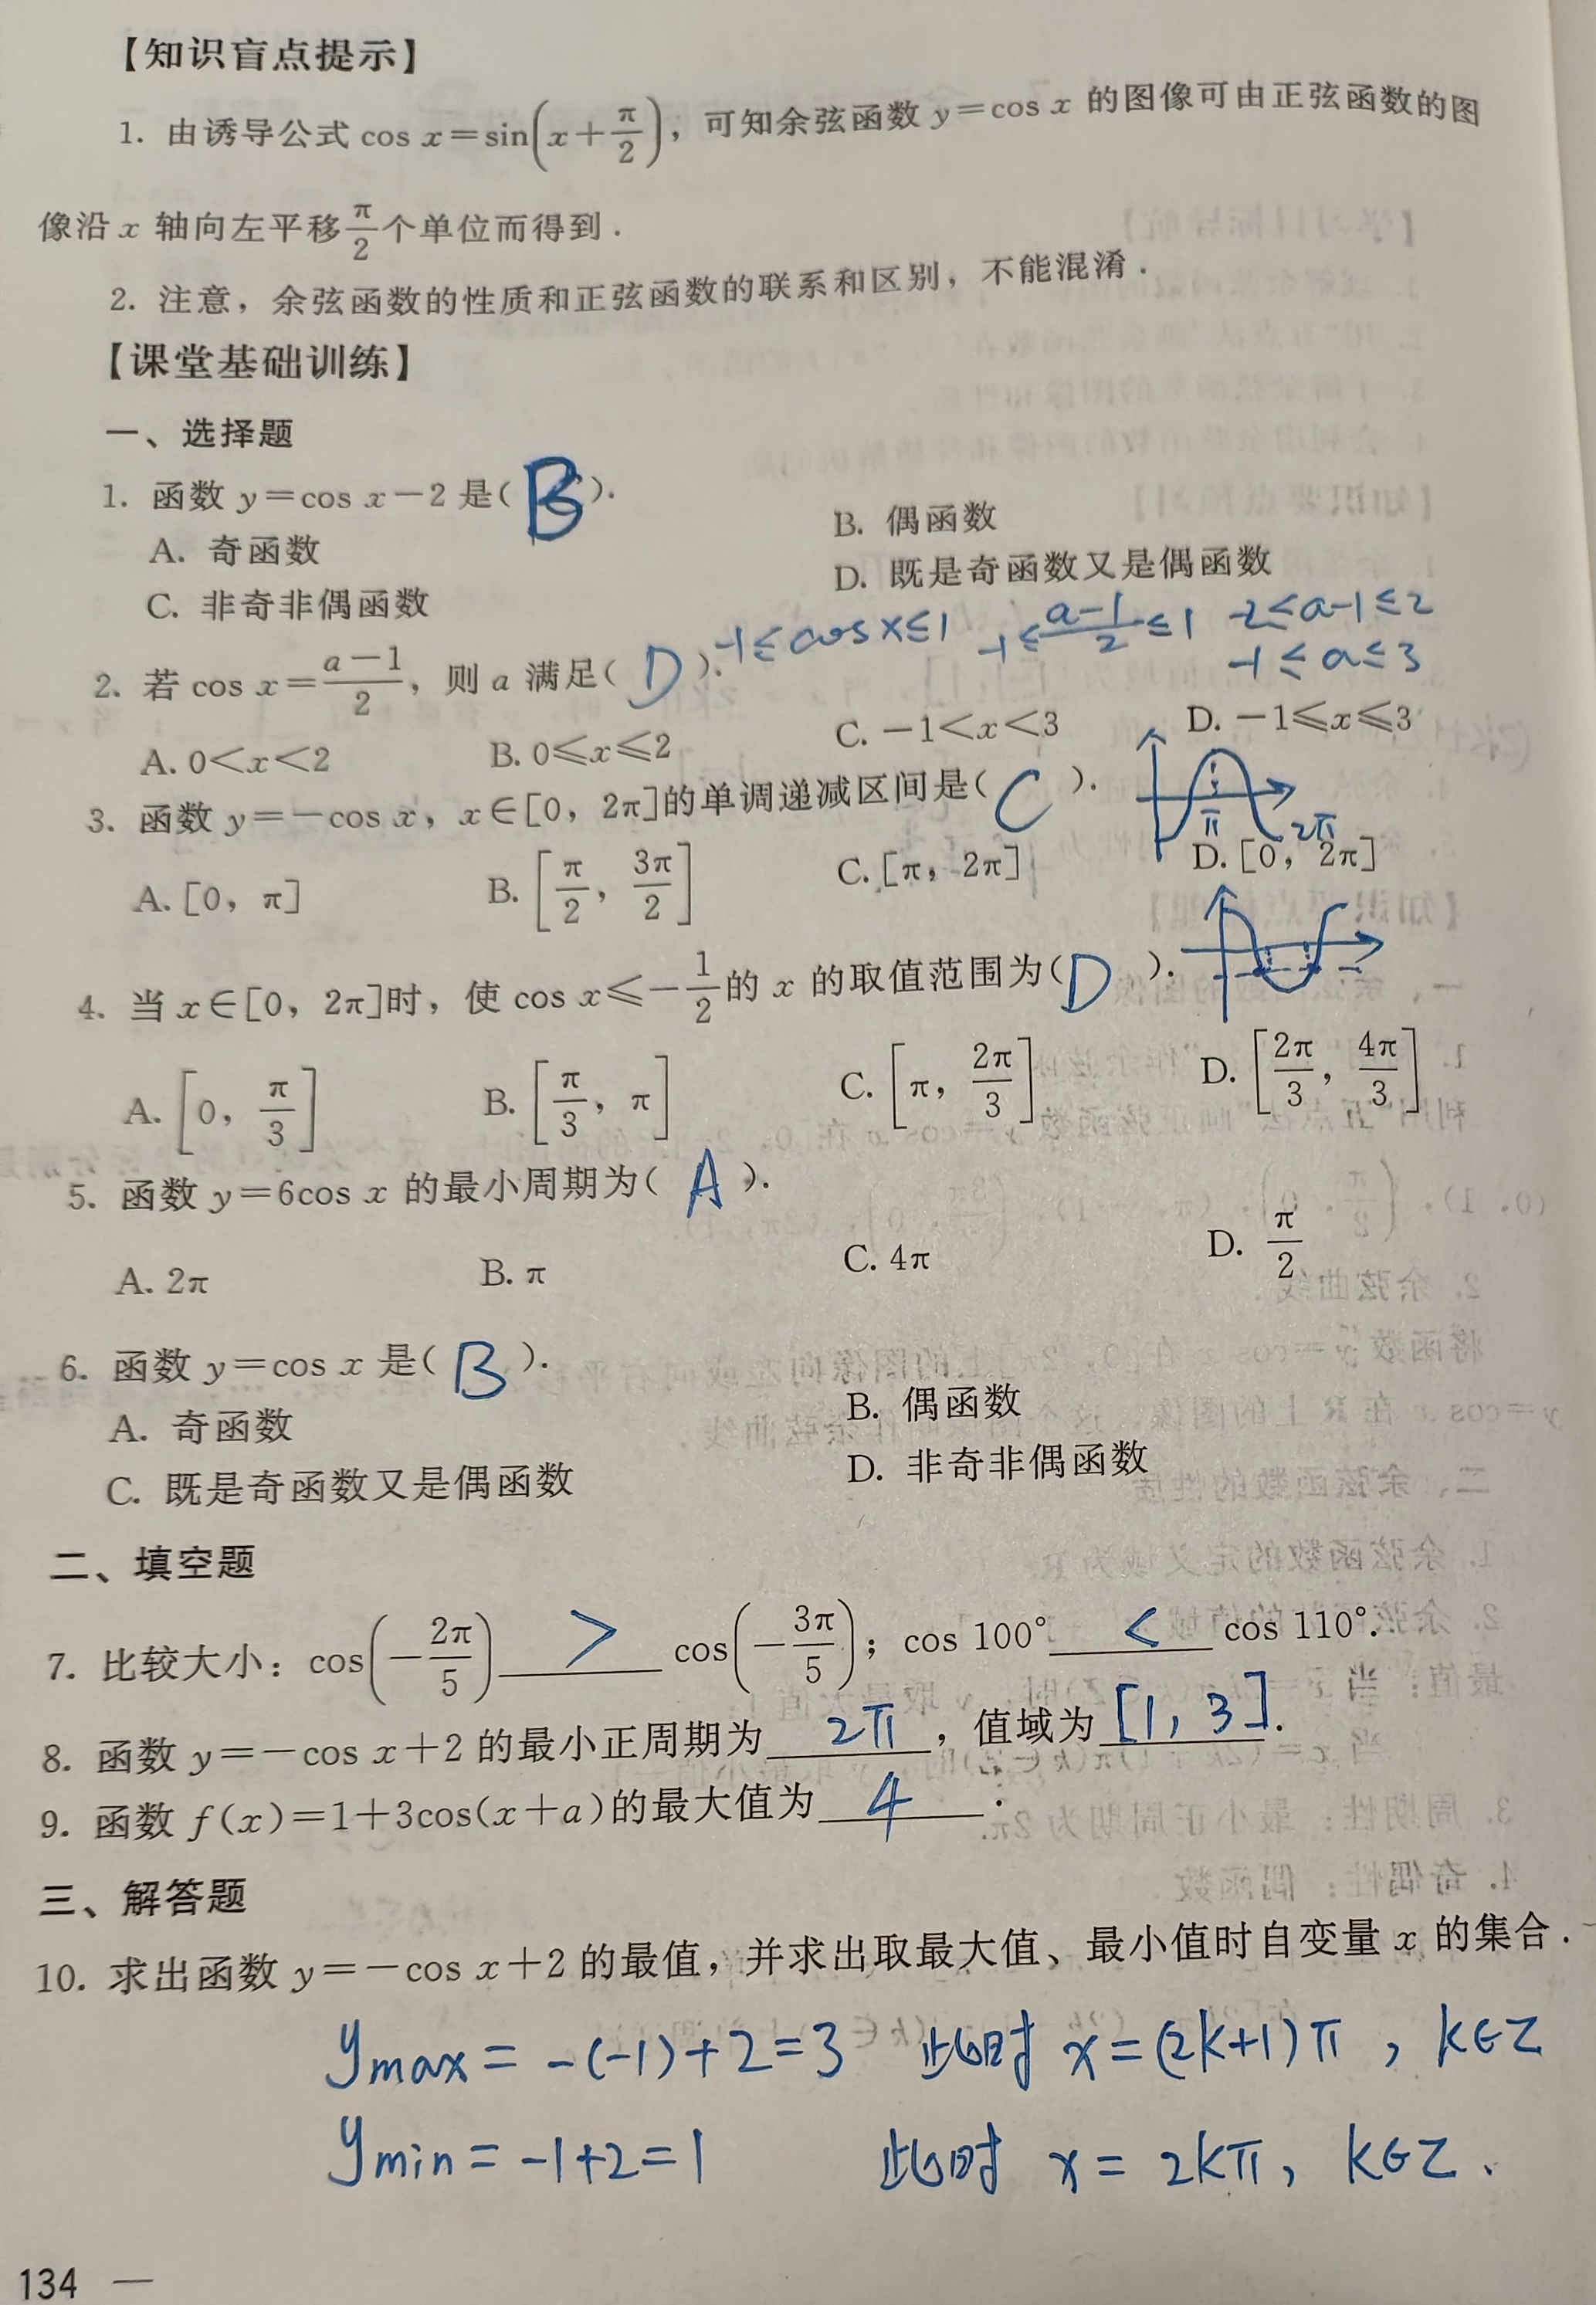 【知识盲点提示】
1. 由诱导公式 cos x=sin(x+π/2)，可知余弦函数 y=cos x 的图像可由正弦函数的图
像沿 x 轴向左平移π/2个单位而得到.
2. 注意，余弦函数的性质和正弦函数的联系和区别，不能混淆.
【课堂基础训练】
一、选择题
1. 函数 y=cos x-2 是( B ).
A. 奇函数 B. 偶函数
C. 非奇非偶函数 D. 既是奇函数又是偶函数
-1≤cosx≤1 -1≤(a-1)/2≤1 -2≤a-1≤2
-1≤a≤3
2. 若 cos x=(a-1)/2，则 a 满足( D ).
A. 0<x<2 B. 0≤x≤2 C. -1<x<3 D. -1≤x≤3
3. 函数 y=-cos x，x∈[0，2π]的单调递减区间是( C ).
π 2π
A. [0，π] B. [π/2，3π/2] C. [π，2π] D. [0，2π]
4. 当 x∈[0，2π]时，使 cos x≤-1/2的 x 的取值范围为( D ).
A. [0，π/3] B. [π/3，π] C. [π，2π/3] D. [2π/3，4π/3]
5. 函数 y=6cos x 的最小周期为( A ).
A. 2π B. π C. 4π D. π/2
6. 函数 y=cos x 是( B ).
A. 奇函数 B. 偶函数
C. 既是奇函数又是偶函数 D. 非奇非偶函数
二、填空题
7. 比较大小：cos(-2π/5) > cos(-3π/5)；cos 100° < cos 110°.
8. 函数 y=-cos x+2 的最小正周期为 2π ，值域为 [1, 3].
9. 函数 f(x)=1+3cos(x+a)的最大值为 4 .
三、解答题
10. 求出函数 y=-cos x+2 的最值，并求出取最大值、最小值时自变量 x 的集合.
ymax = -(-1)+2=3 此时 x=(2k+1)π , k∈Z
ymin = -1+2=1 此时 x = 2kπ, k∈Z、
134 —